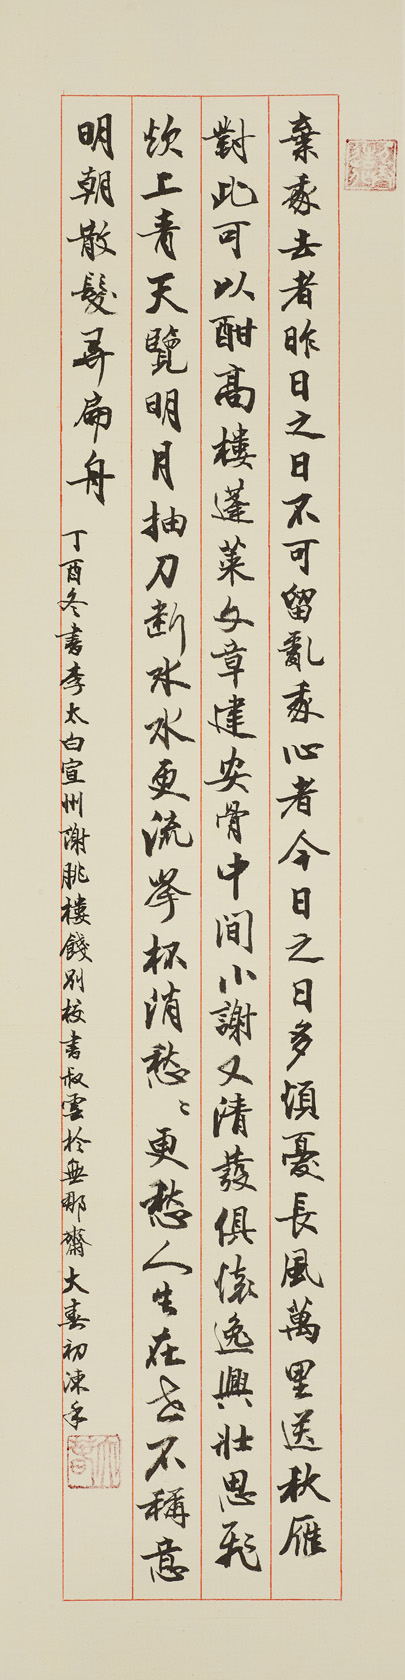 棄我去者昨日之日不可留亂我心者今日之日多煩憂長風萬里送秋雁
對此可以酣高樓蓬萊文章建安骨中間小謝又清發俱懷逸興壯思飛
欲上青天覽明月抽刀斷水水更流舉杯消愁〻更愁人生在世不稱意
明朝散髮弄扁舟
丁酉冬書李太白宣州謝朓樓餞別校書叔雲於無那齋大春初凍